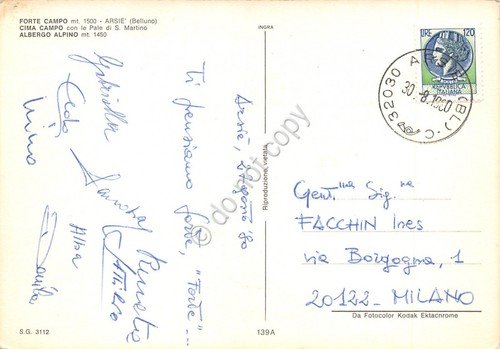 FORTE CAMPO mt. 1500 - ARSIE' (Belluno)
CIMA CAMPO con le Pale di S. Martino
ALBERGO ALPINO mt. 1450
INGRA
LIRE 120
REPVBBLICA
ITALIANA
32030 ARSIE' (BL) - C
30.8.1980
Arsiè,
Ti pensiamo forte, "Forte"...
Renata
Gabriella
Alba
Danila
Gent.ma Sig.na
FACCHIN Ines
via Borgogna, 1
20122 - MILANO
Riproduzione vietata
do not copy
S.G. 3112
139A
Da Fotocolor Kodak Ektacnrome